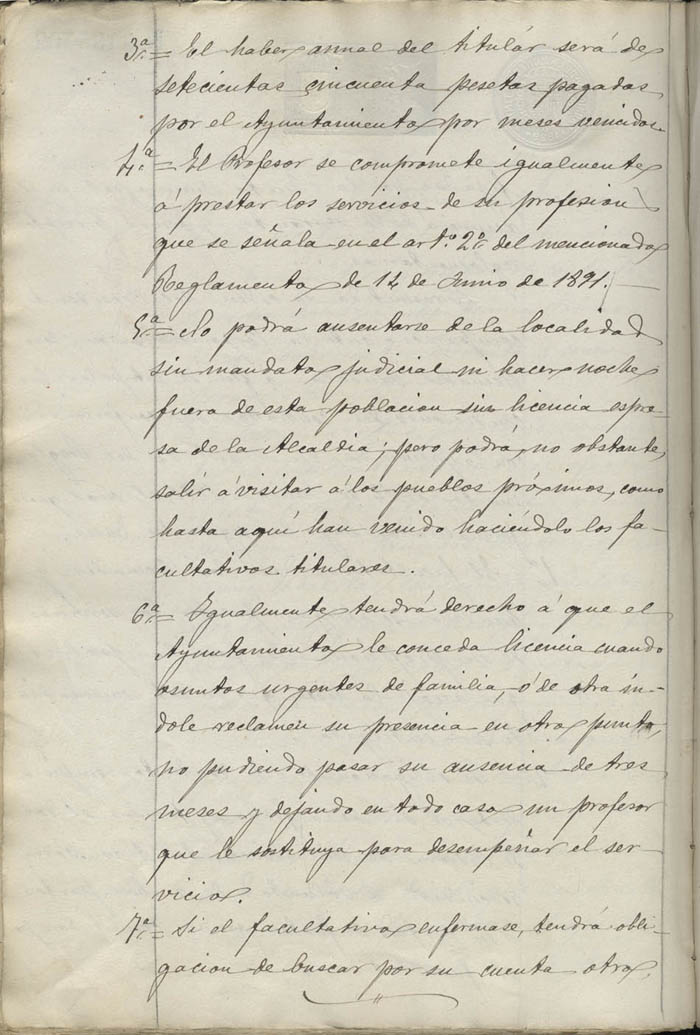 3ª= El haber anual del titulár será de
setecientas cincuenta pesetas pagadas
por el Ayuntamiento por meses vencidos.
4ª= El Profesor se compromete igualmente
á prestar los servicios de su profesion
que se señala en el artº 2º del mencionado
Reglamento de 14 de Junio de 1891.
5ª= No podrá ausentarse de la localidad
sin mandato judicial ni hacer noche
fuera de esta poblacion sin licencia espre-
sa de la Alcaldia; pero podrá, no obstante,
salir á visitar á los pueblos próximos, como
hasta aquí han venido haciéndolo los fa-
cultativos titulares.
6ª= Igualmente tendrá derecho á que el
Ayuntamiento le conceda licencia cuando
asuntos urgentes de familia, ó de otra ín-
dole reclamen su presencia en otro punto,
no pudiendo pasar su ausencia de tres
meses y dejando en todo caso un profesor
que le sostituya para desempeñar el ser-
vicio.
7ª= Si el facultativo enfermase, tendrá obli-
gacion de buscar por su cuenta otro,